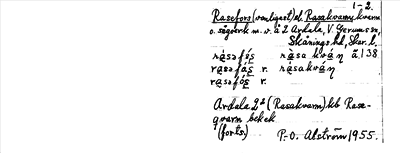 1-2.
Rasefors (vanligast) el. Rasakvarn, kvarn
o. sågverk m. v. å 2 Ardala, V. Gerums sn,
Skånings hd, Skar. l.
rasafós rasakván å 138
rasafás r. rasakván
rasafós r.
Ardala 2² (Rasakvarn) kb Rase-
qvarn bek ek
(forts.) P.-O. Alström 1955.